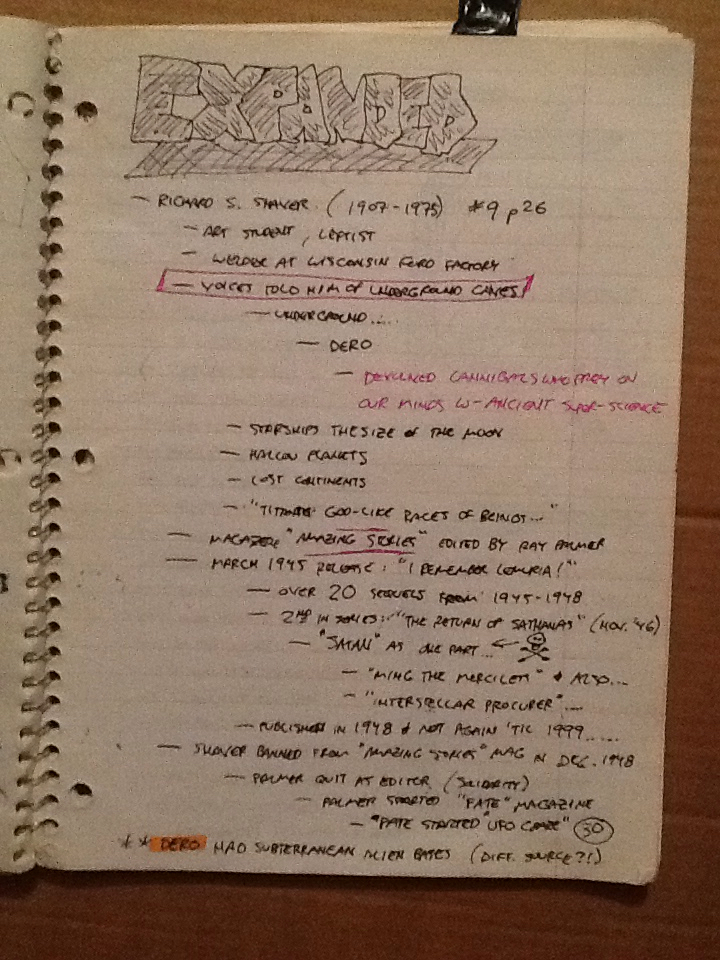 EXPANDED
— RICHARD S. SHAVER (1907-1975) *9 p26
— ART STUDENT, LEFTIST
— WELDER AT WISCONSIN FORD FACTORY
— VOICES TOLD HIM OF UNDERGROUND CAVES
— UNDERGROUND....
— DERO
— DEVOLVED CANNIBALS WHO PREY ON
OUR MINDS W- ANCIENT SUPER-SCIENCE
— STARSHIPS THE SIZE OF THE MOON
— HALLOW PLANETS
— LOST CONTINENTS
— "TITANS: GOD-LIKE RACES OF BEINGS..."
— MAGAZINE "AMAZING STORIES" EDITED BY RAY PALMER
— MARCH 1945 RELEASE: "I REMEMBER LEMURIA!"
— OVER 20 SEQUELS FROM 1945-1948
— 2ND IN SERIES: "THE RETURN OF SATHANAS" (NOV. '46)
— "SATAN" AS ONE PART...
— "MING THE MERCILESS" & ALSO...
— "INTERSTELLAR PROCURER"....
— PUBLISHED IN 1948 & NOT AGAIN 'TIL 1999......
— SHAVER BANNED FROM "AMAZING STORIES" MAG IN DEC. 1948
— PALMER QUIT AS EDITOR (SOLIDARITY)
— PALMER STARTED "FATE" MAGAZINE
— "FATE STARTED "UFO CRAZE" 30
** DERO HAD SUBTERRANEAN ALIEN BASES (DIFF. SOURCE?!)